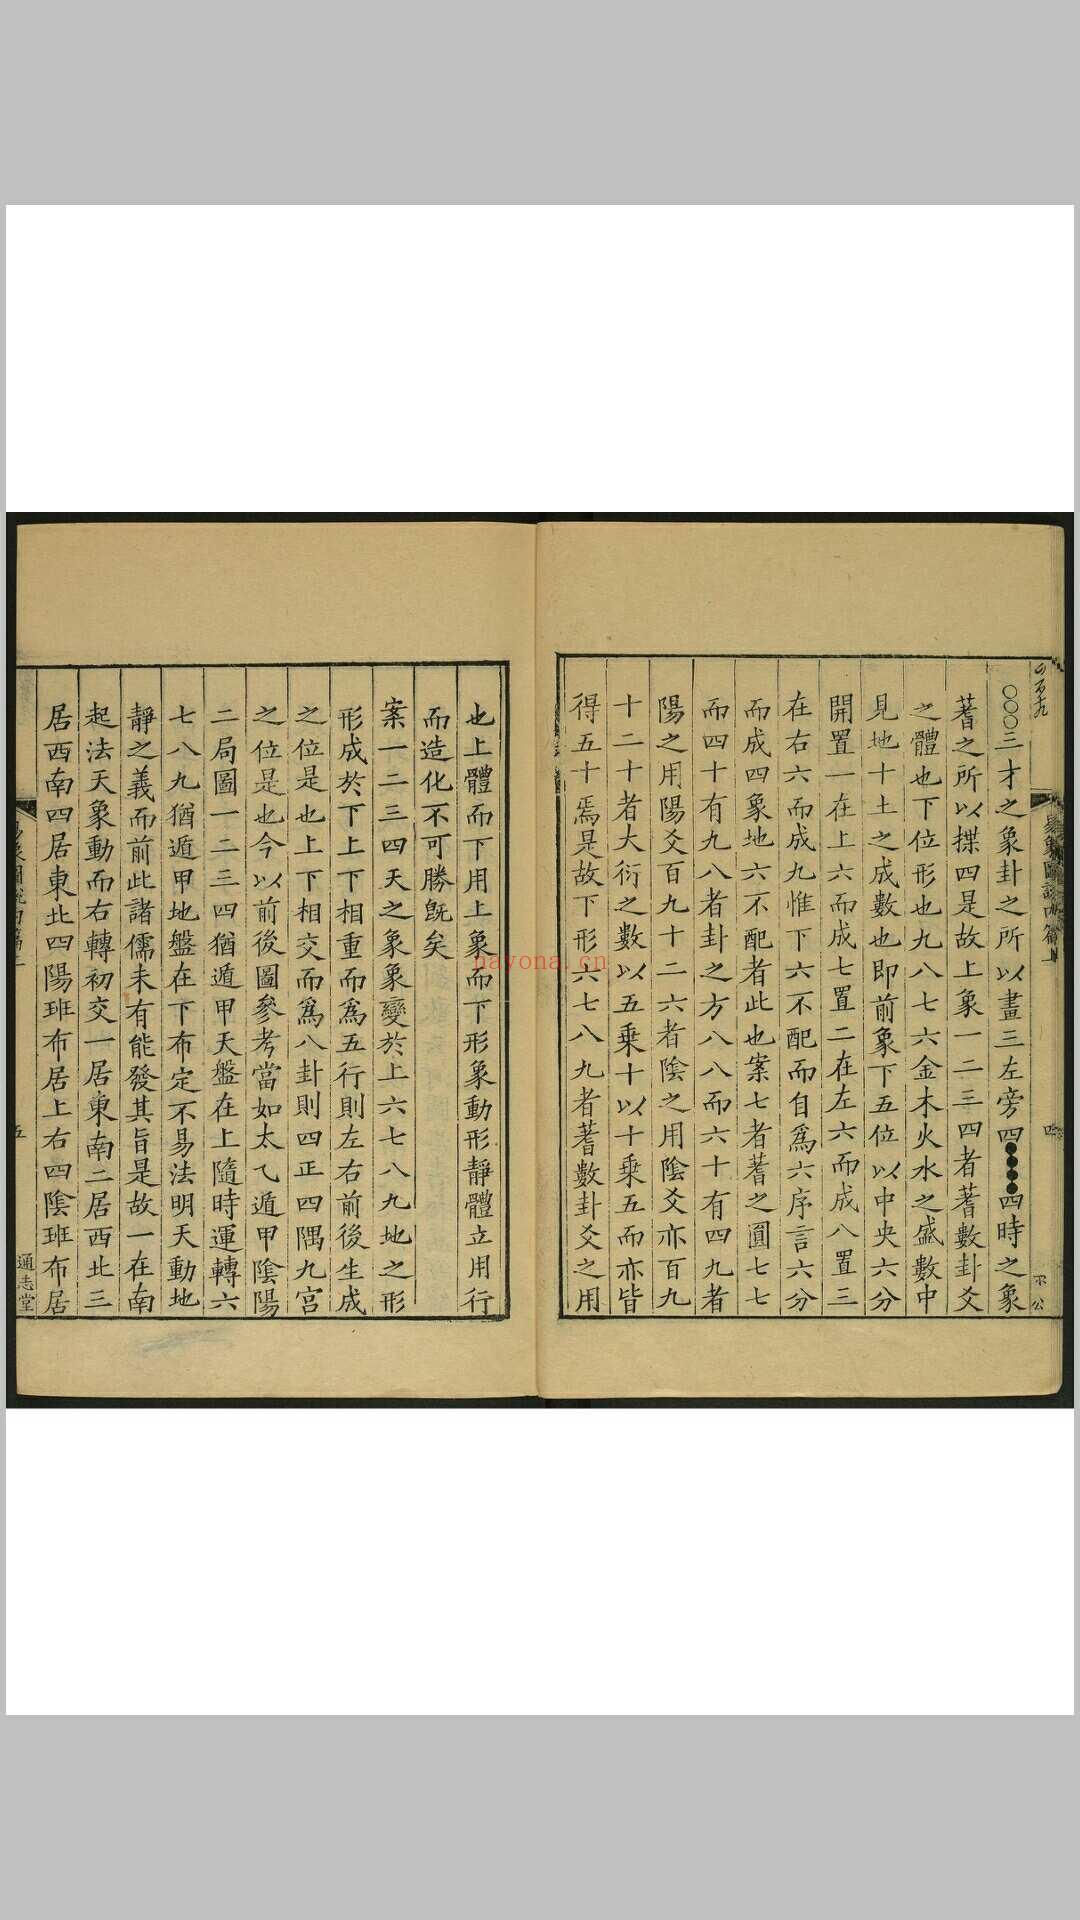 ○○○三才之象卦之所以畫三左旁四●●●●四時之象
蓍之所以揲四是故上象一二三四者蓍數卦爻
之體也下位形也九八七六金木火水之盛數中
見地十土之成數也即前象下五位以中央六分
開置一在上六而成七置二在左六而成八置三
在右六而成九惟下六不配而自爲六序言六分
而成四象地六不配者此也案七者蓍之圓七七
而四十有九八者卦之方八八而六十有四九者
陽之用陽爻百九十二六者陰之用陰爻亦百九
十二十者大衍之數以五乗十以十乗五而亦皆
得五十焉是故下形六七八九者蓍數卦爻之用
也上體而下用上象而下形象動形靜體立用行
而造化不可勝旣矣
案一二三四天之象象變於上六七八九地之形
形成於下上下相重而爲五行則左右前後生成
之位是也上下相交而爲八卦則四正四隅九宮
之位是也今以前後圖參考當如太乙遁甲陰陽
二局圖一二三四猶遁甲天盤在上隨時運轉六
七八九猶遁甲地盤在下布定不易法明天動地
靜之義而前此諸儒未有能發其旨是故一在南
起法天象動而右轉初交一居東南二居西北三
居西南四居東北四陽班布居上右四陰班布居
五
通志堂
nayona.cn